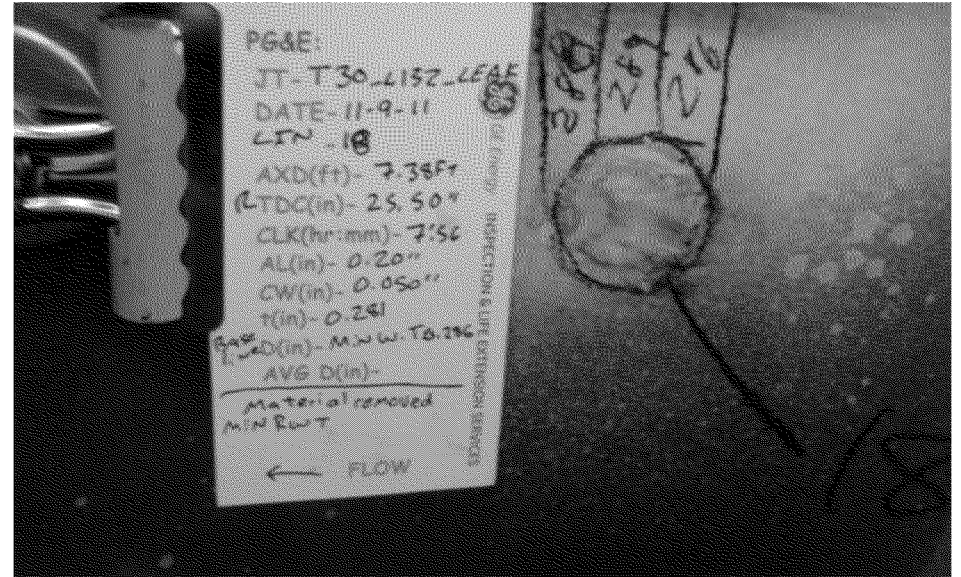 PG&E:
JT- T30_L132_LEAF
DATE- 11-9-11
LIN - 18
AXD(ft)- 7.38FT
TDC(in)- 25.50"
CLK(hr:mm)- 7:56
AL(in)- 0.20""
CW(in)- 0.050""
t(in)- 0.281
D(in)- MIN W.T 0.286
AVG D(in)-
Material removed
MIN RWT
← FLOW
INSPECTION & LIFE EXTENSION SERVICES
289
18